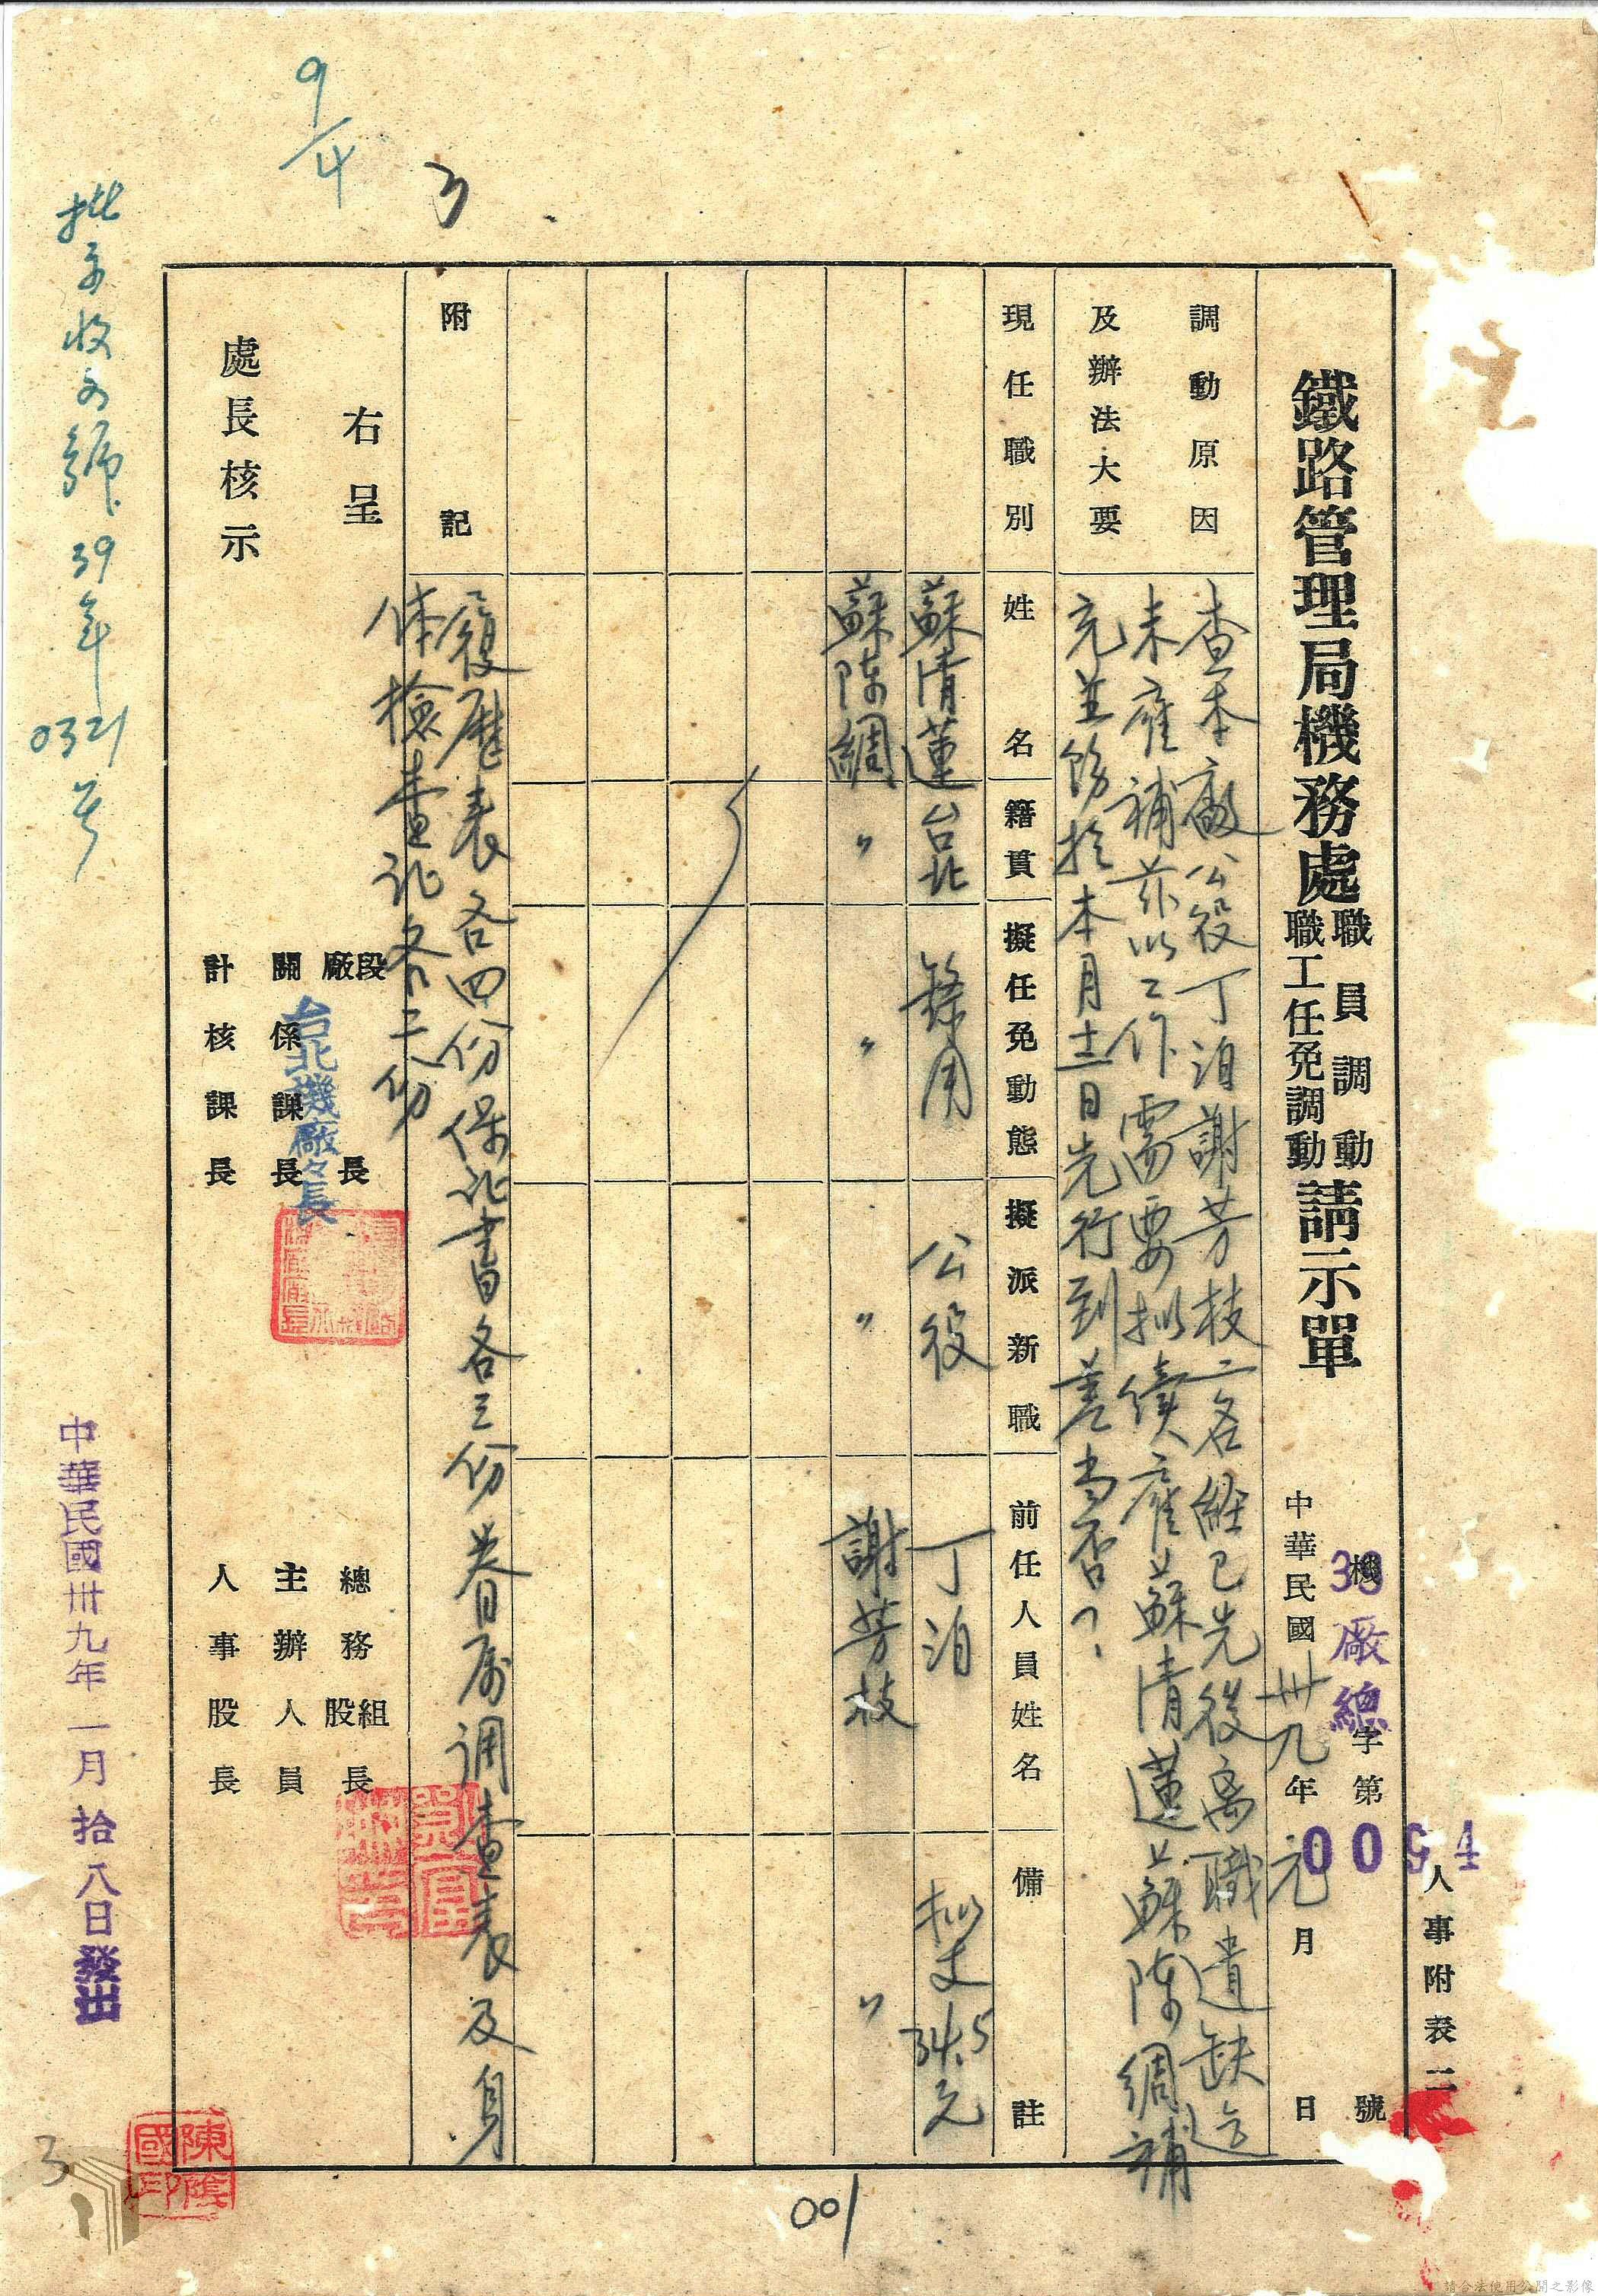 人事附表二
機 字第 號
39 廠總 0094
鐵路管理局機務處職員調動職工任免調動請示單
中華民國卅九年元月 日
調動原因
及辦法大要
查本廠公役丁泊謝芳枝二名經已先後离職遺缺迄
未雇補茲以工作需要拟續雇蘇清蓮蘇陳綢補
充並飭於本月十二日先行到差當否？
現任職別
姓名
籍貫
擬任免動態
擬派新職
前任人員姓名
備註
蘇清蓮 台北 錄用 公役 丁泊 拟支34.5元
蘇陳綢 〃 〃 〃 謝芳枝 〃
附記
履歷表各四份保証書各三份眷属調查表及身
体檢查証各二份
右呈
處長核示
廠段長
總務股組長
關係課長
主辦人員
計核課長
人事股長
台北機廠々長
收文號 39年0321号
中華民國卅九年一月拾八日發出
9/4
3
陳國印
3
001
請合法使用公開之影像